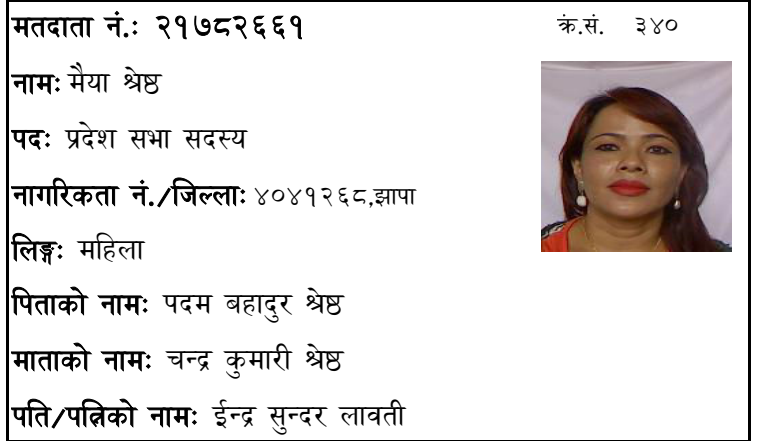 मतदाता नं.: २१७८२६६१ क्रं.सं. ३४०
नामः मैया श्रेष्ठ
पदः प्रदेश सभा सदस्य
नागरिकता नं./जिल्लाः ४०४१२६८,झापा
लिङ्गः महिला
पिताको नामः पदम बहादुर श्रेष्ठ
माताको नामः चन्द्र कुमारी श्रेष्ठ
पति/पत्निको नामः ईन्द्र सुन्दर लावती